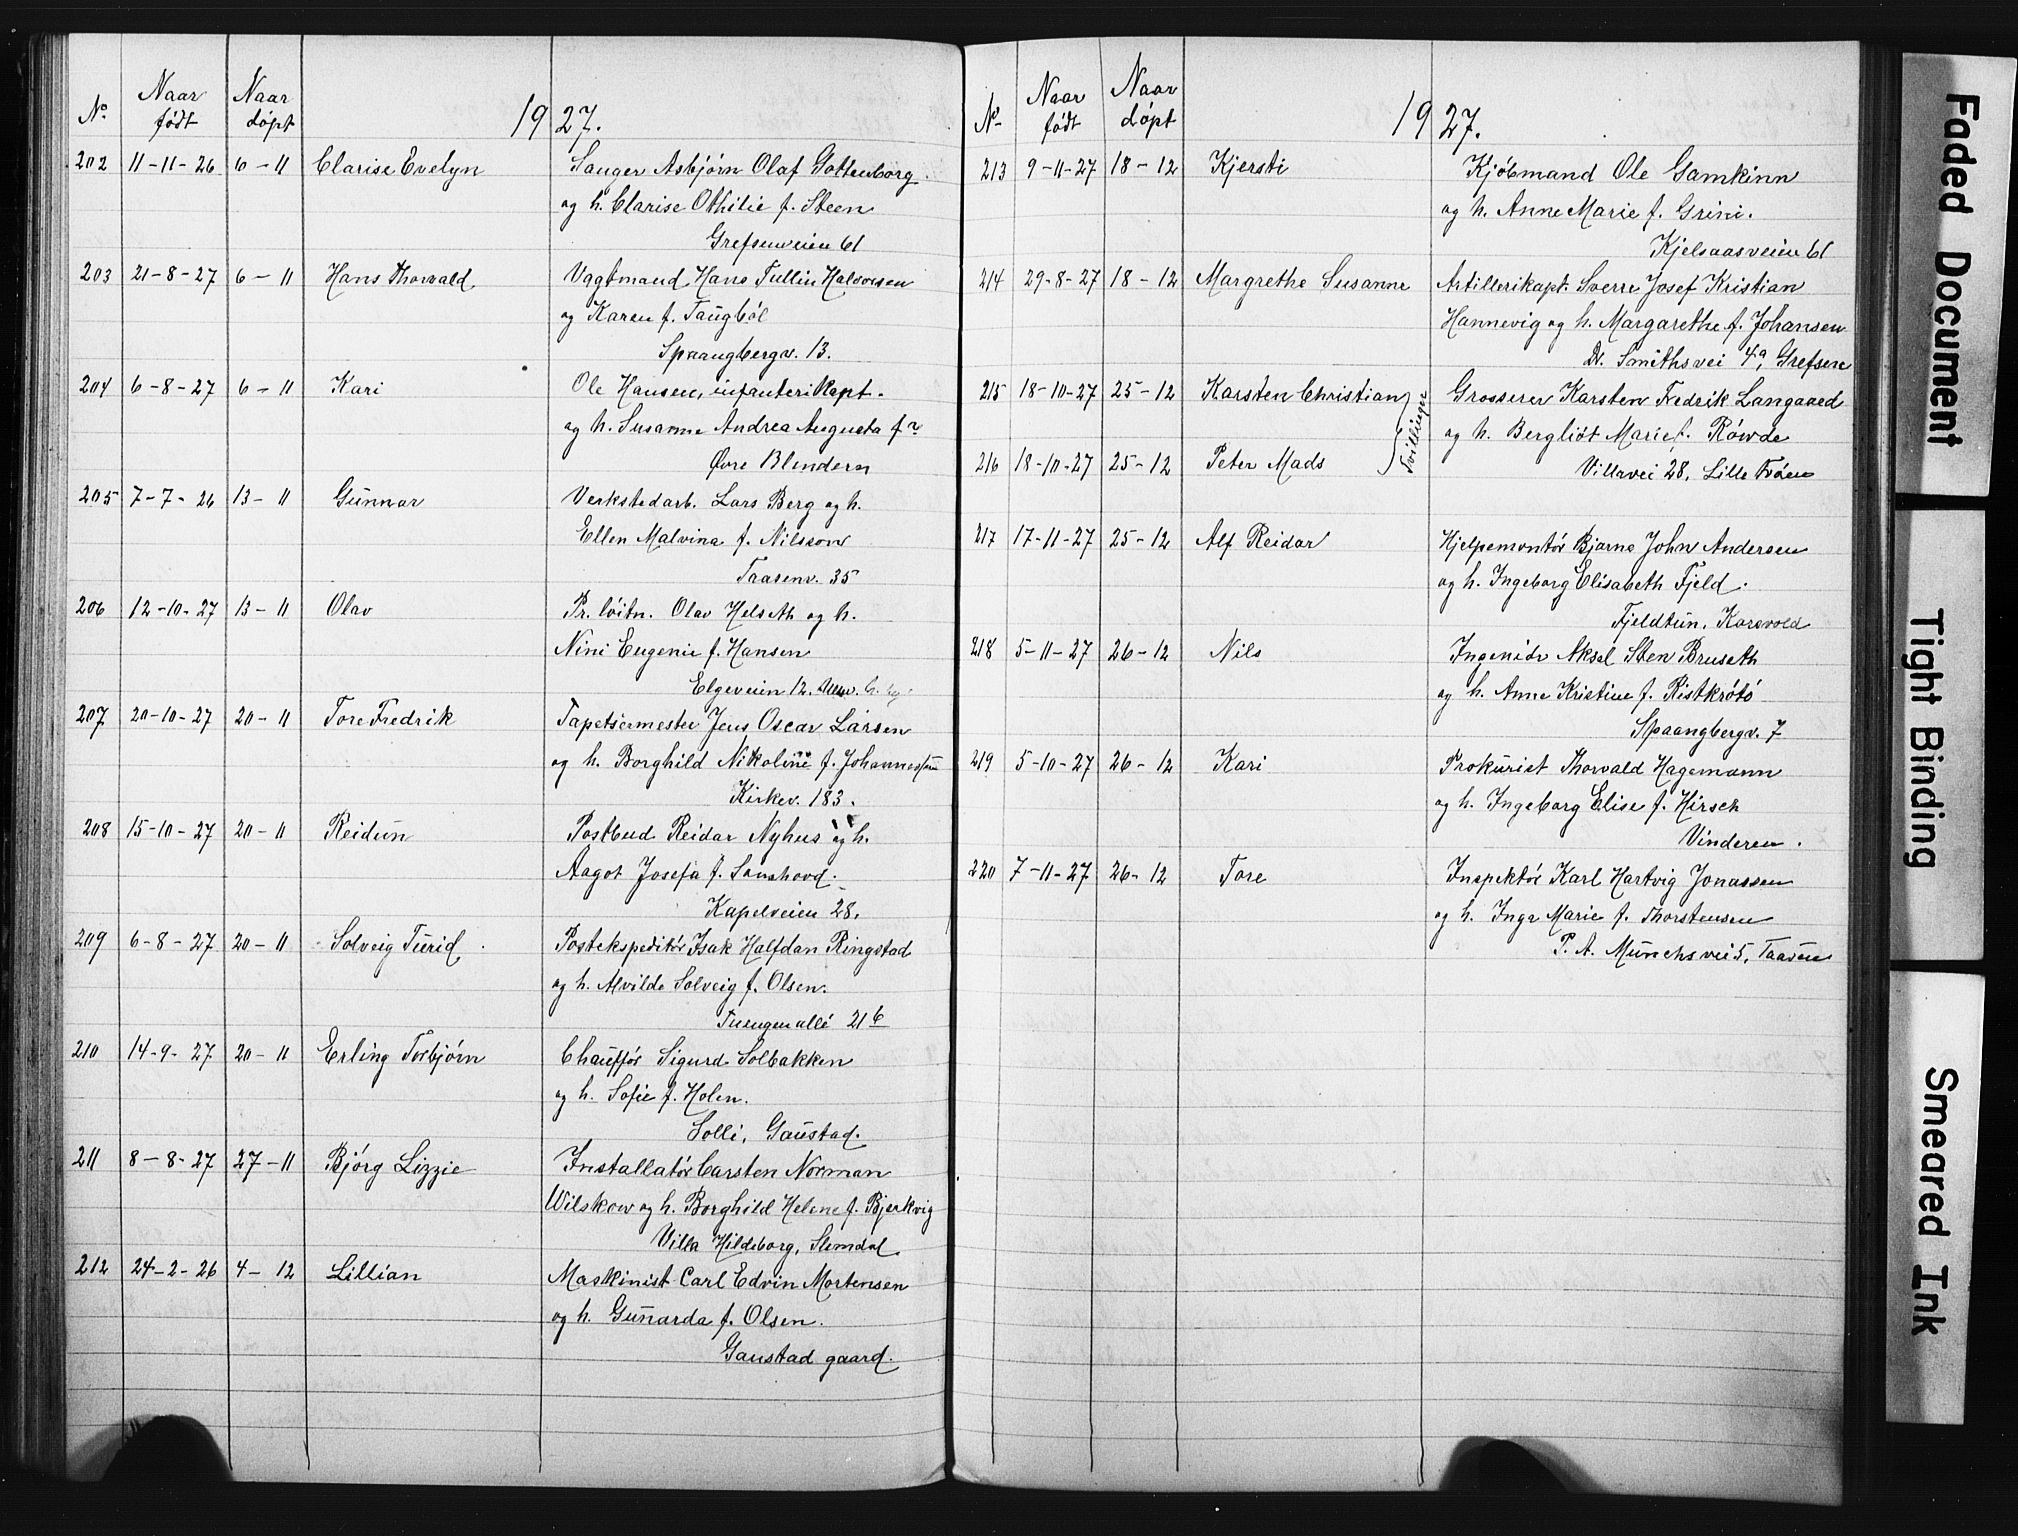 No Naar født Naar døpt 1927.
202 11-11-26 6-11 Clarise Evelyn Sanger Asbjørn Olaf Gottenborg
og h. Clarise Othilie f. Steen
Grefsenveien 61
203 21-8-27 6-11 Hans Thorvald Vagtmand Hans Tullin Halvorsen
og Karen f. Taugbøl
Spaangbergv. 13.
204 6-8-27 6-11 Kari Ole Hansen, infanterikapt.
og h. Susanne Andrea Augusta f?
Øvre Blindern
205 7-7-26 13-11 Gunnar Verkstedarb. Lars Berg og h.
Ellen Malvina f. Nilsson
Taasenv. 35
206 12-10-27 13-11 Olav Pr. løitn. Olav Helseth og h.
Nini Eugenie f. Hansen
Elgeveien 12.
207 20-10-27 20-11 Tore Fredrik Tapetsermester Jens Oscar Larsen
og h. Borghild Nikoline f. Johannessen
Kirkev. 183.
208 15-10-27 20-11 Reidun Postbud Reidar Nyhus og h.
Aagot Josefa f. Sanshovd.
Kapelveien 28.
209 6-8-27 20-11 Solveig Turid Postekspeditør Isak Halfdan Ringstad
og h. Alvilde Solveig f. Olsen.
Tuengen allé 21 b
210 14-9-27 20-11 Erling Torbjørn Chauffør Sigurd Solbakken
og h. Sofie f. Holen.
Solli, Gaustad.
211 8-8-27 27-11 Bjørg Lizzie Installatør Carsten Norman
Wilskow og h. Borghild Helene f. Bjerkvig
Villa Hildeborg, Slemdal
212 24-2-26 4-12 Lillian Maskinist Carl Edvin Mortensen
og h. Gunarda f. Olsen.
Gaustad gaard.
No Naar født Naar døpt 1927.
213 9-11-27 18-12 Kjersti Kjøbmand Ole Gamkinn
og h. Anne Marie f. Grini.
Kjelsaasveien 61
214 29-8-27 18-12 Margrethe Susanne Artillerikapt. Sverre Josef Kristian
Hannevig og h. Margarethe f. Johansen
Dr. Smithsvei 4a, Grefsen
215 18-10-27 25-12 Karsten Christian Grosserer Karsten Fredrik Langaard
og h. Bergliot Marie f. Røwde
216 18-10-27 25-12 Peter Mads Tvillinger Villavei 28, Lille Frøen
217 17-11-27 25-12 Alf Reidar Hjelpemontør Bjarne John Andersen
og h. Ingeborg Elisabeth Fjeld.
Fjeldtun, Korsvold
218 5-11-27 26-12 Nils Ingeniør Aksel Sten Bruseth
og h. Anne Kristine f. Ristkrøtø
Spaangbergv. 7
219 5-10-27 26-12 Kari Prokurist Thorvald Hagemann
og h. Ingeborg Elise f. Hirsch
Vinderen.
220 7-11-27 26-12 Tore Inspektør Karl Hartvig Jonassen
og h. Inga Marie f. Thorstensen
P. A. Munchs vei 5, Taasen
Faded Document
Tight Binding
Smeared Ink